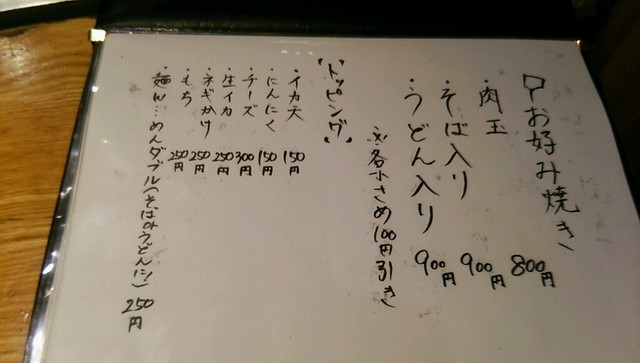 お好み焼き
・肉玉 800円
・そば入り 900円
・うどん入り 900円
※各小さめ100円引き
「トッピング」
・イカ天 150円
・にんにく 150円
・チーズ 300円
・生イカ 250円
・ネギかけ 250円
・もち 250円
・麺W…めんダブル(そばorうどんに!) 250円